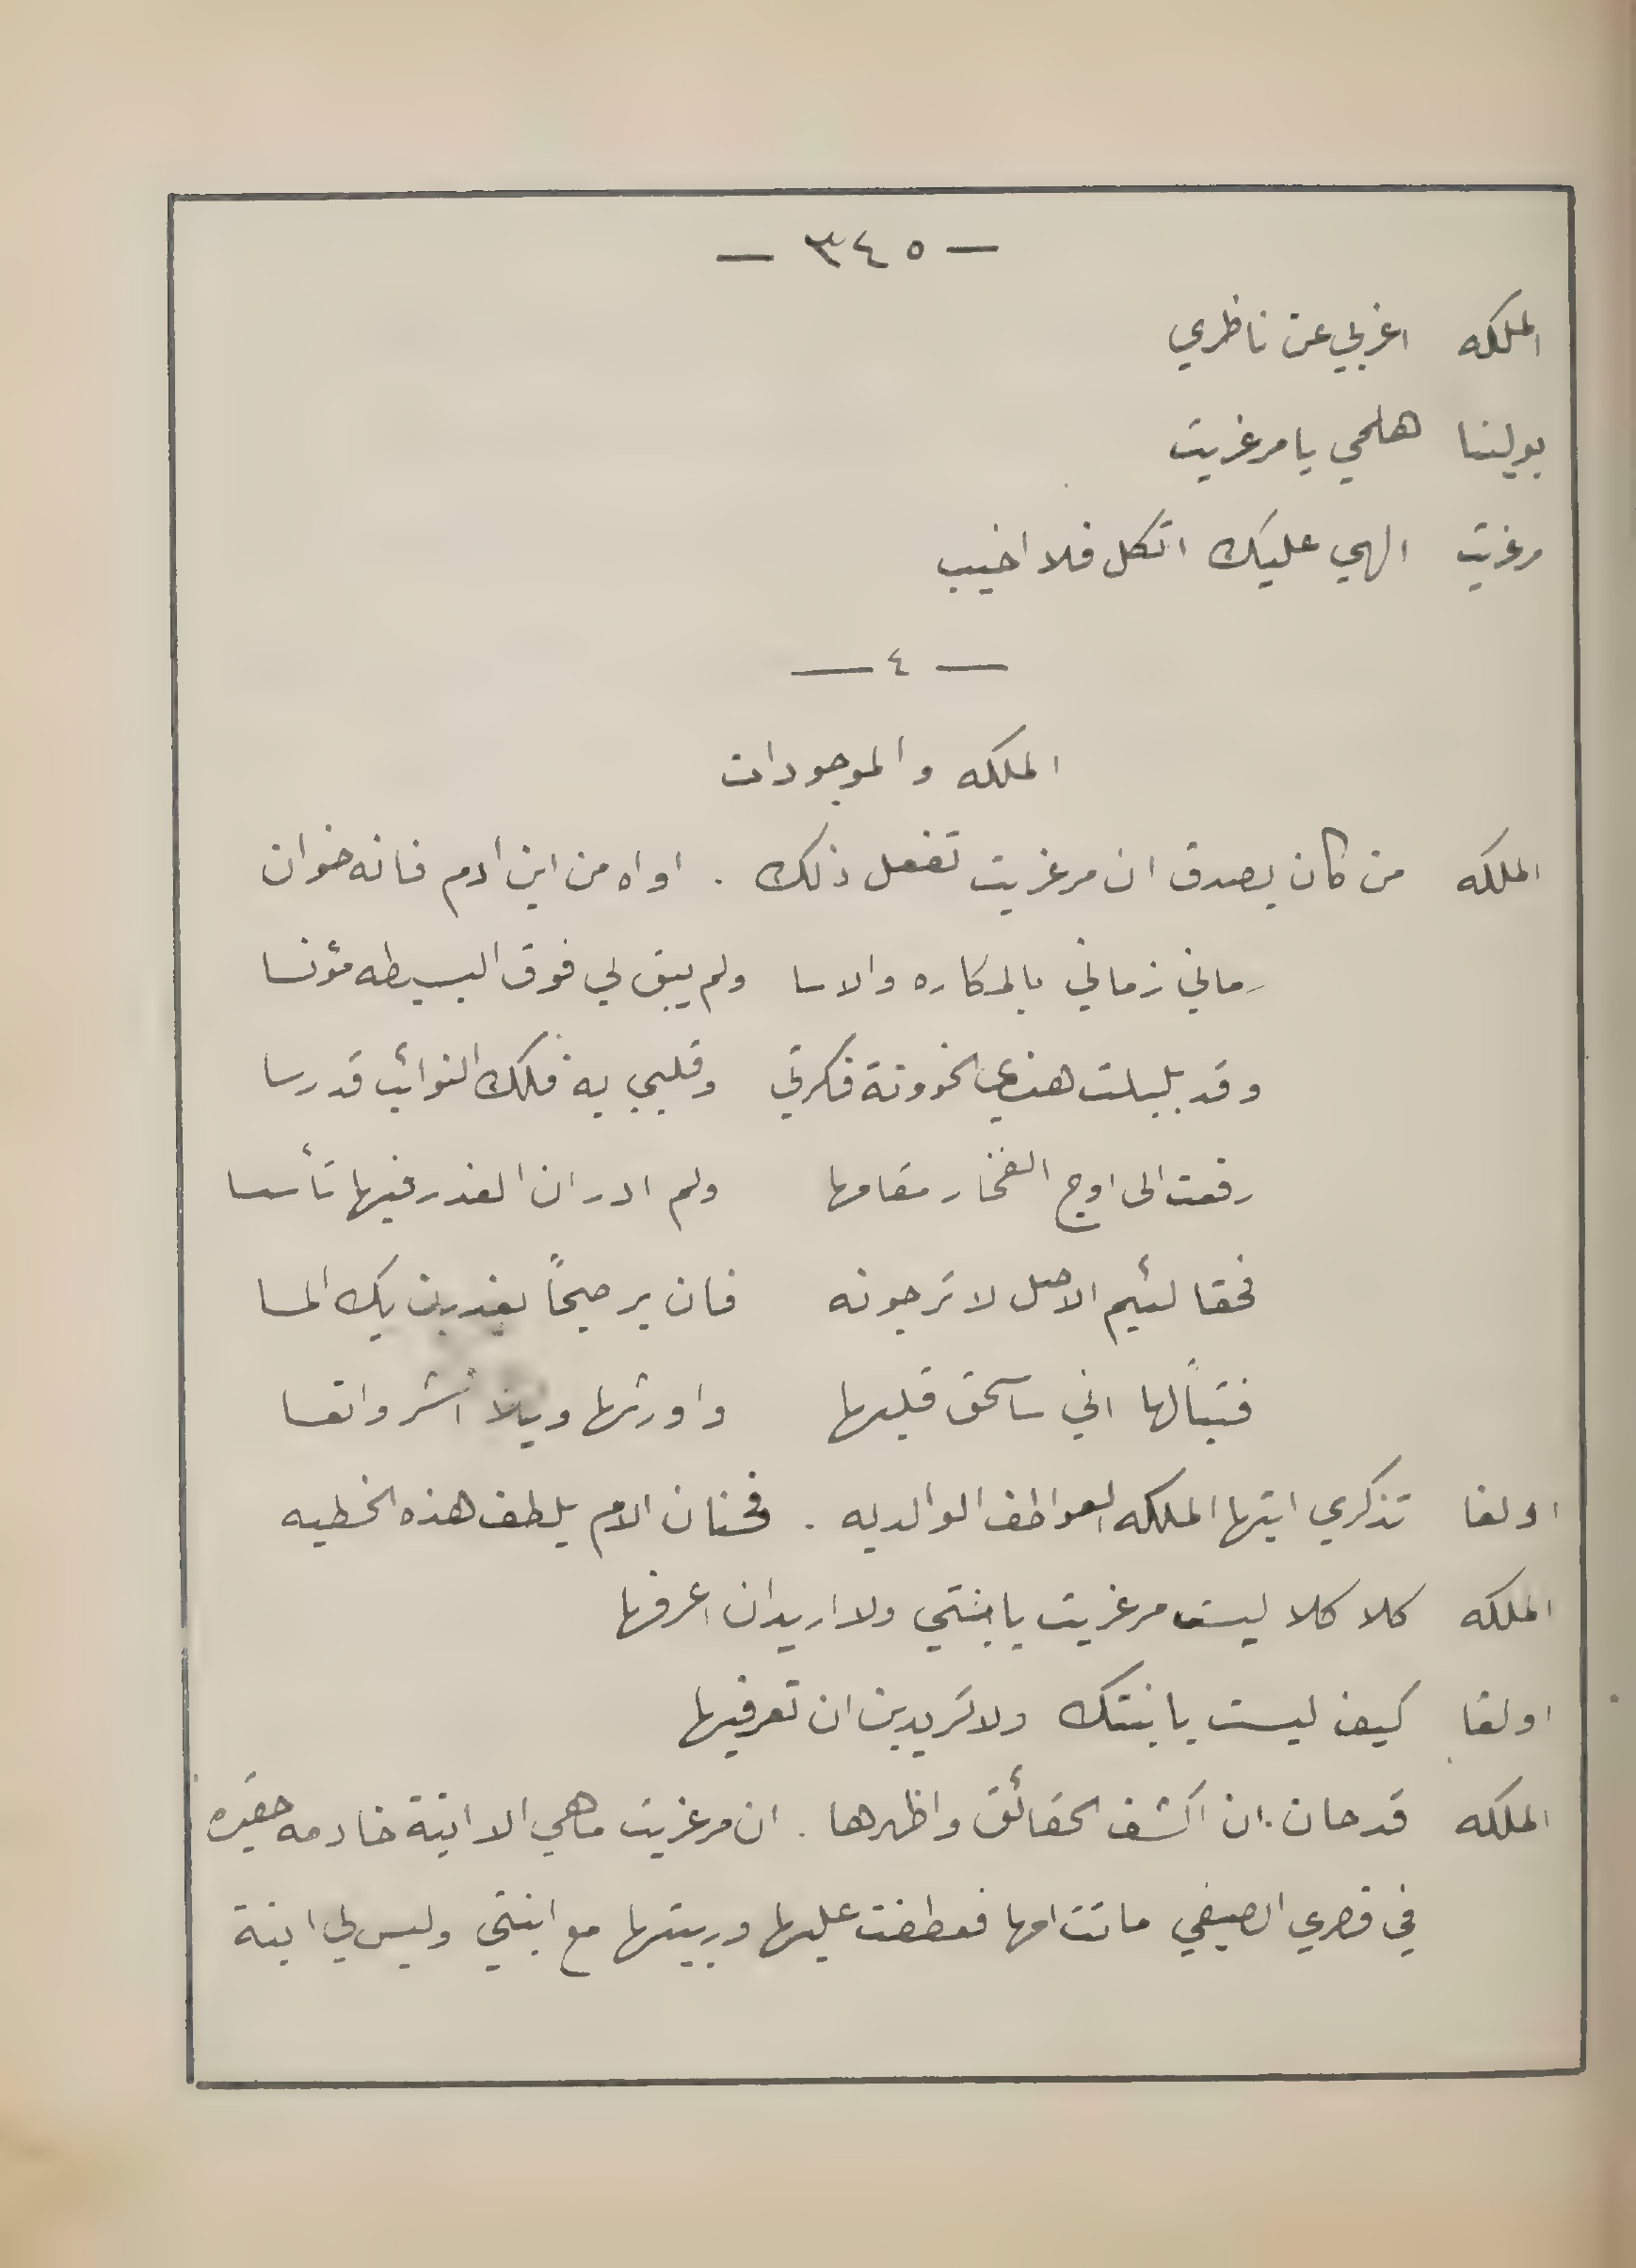 — ٣٤٥ —
الملكه اغربي عن ناظري
بولينا هلمي يا مرغريت
مرغريت الهي عليك اتكل فلا اخيب
— ٤ —
الملكه والموجودات
الملكه من كان يصدق ان مرغريت تفعل ذلك . اواه من ابن ادم فانه خوان
رماني زماني بالمكاره والاسا ولم يبق لي فوق البسيطه مؤنسا
وقد بلبلت هذي الخوونة فكرتي وقلبي به فلك النوائب قد رسا
رفعت الى اوج الفخار مقامها ولم ادر ان الغدر فيها تأسسا
فحقا لئيم الاصل لا ترجونه فان ير صبحاً يغدرن بك المسا
فتباً لها اني ساسحق قلبها واورثها ويلاً اشر واتعسا
اولغا تذكري ايتها الملكه العواطف الوالديه . فحنان الام يلطف هذه الخطيه
الملكه كلا كلا ليست مرغريت يا بنتي ولا اريد ان اعرفها
اولغا كيف ليست يا بنتك ولا تريدين ان تعرفيها
الملكه قد حان ان اكشف الحقائق واظهرها . ان مرغريت ما هي الا ابنة خادمه حقيره
في قصري الصيفي ماتت امها فعطفت عليها وربيتها مع ابنتي وليس لي ابنة